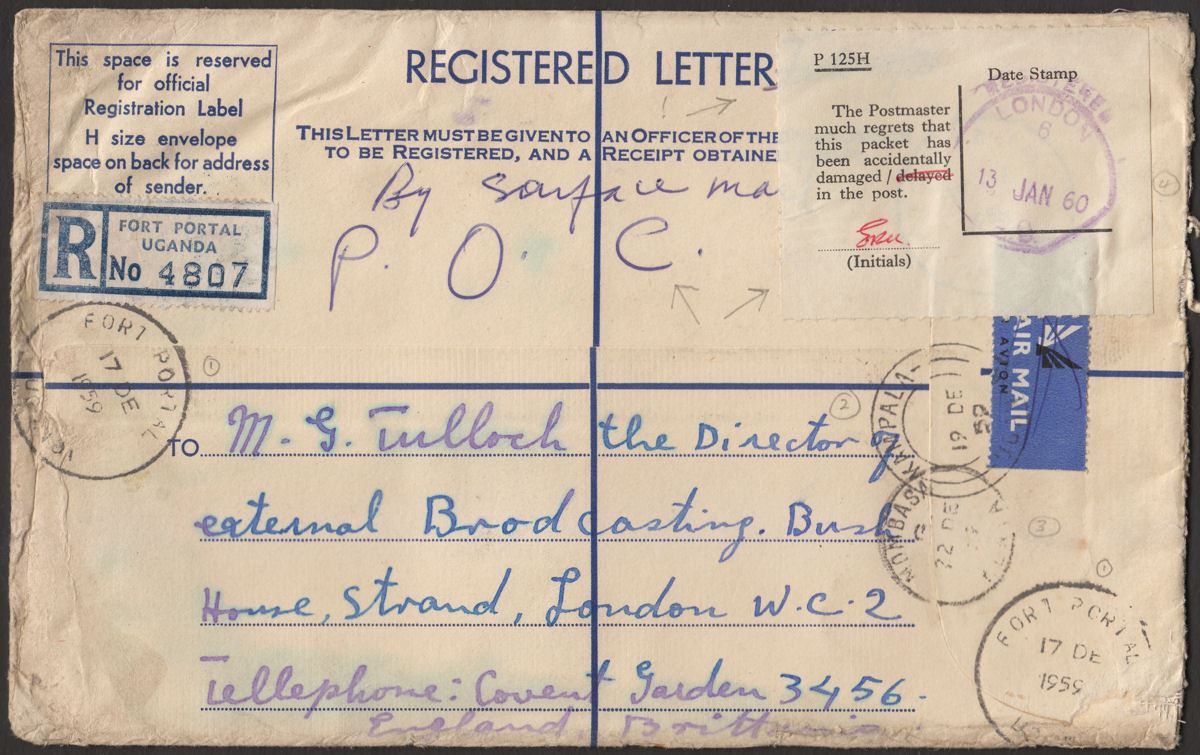 This space is reserved
for official
Registration Label
H size envelope
space on back for address
of sender.
REGISTERED LETTER
THIS LETTER MUST BE GIVEN TO AN OFFICER OF THE
TO BE REGISTERED, AND A RECEIPT OBTAINE
P 125H
Date Stamp
The Postmaster
much regrets that
this packet has
been accidentally
damaged / delayed
in the post.
(Initials)
REGISTERED
LONDON
6
13 JAN 60
By surface ma
P. O. C.
R
FORT PORTAL
UGANDA
No 4807
FORT PORTAL
17 DE
1959
UGANDA
AIR MAIL
AVION
KAMPALA
19 DE
59
MOMBASA
22 DE
1
2
3
4
1
TO M. G. Tulloch the Director of
external Brodcasting. Bush
House, Strand, London W.C.2
Tellephone: Covent Garden 3456.
England, Brittania
FORT PORTAL
17 DE
1959